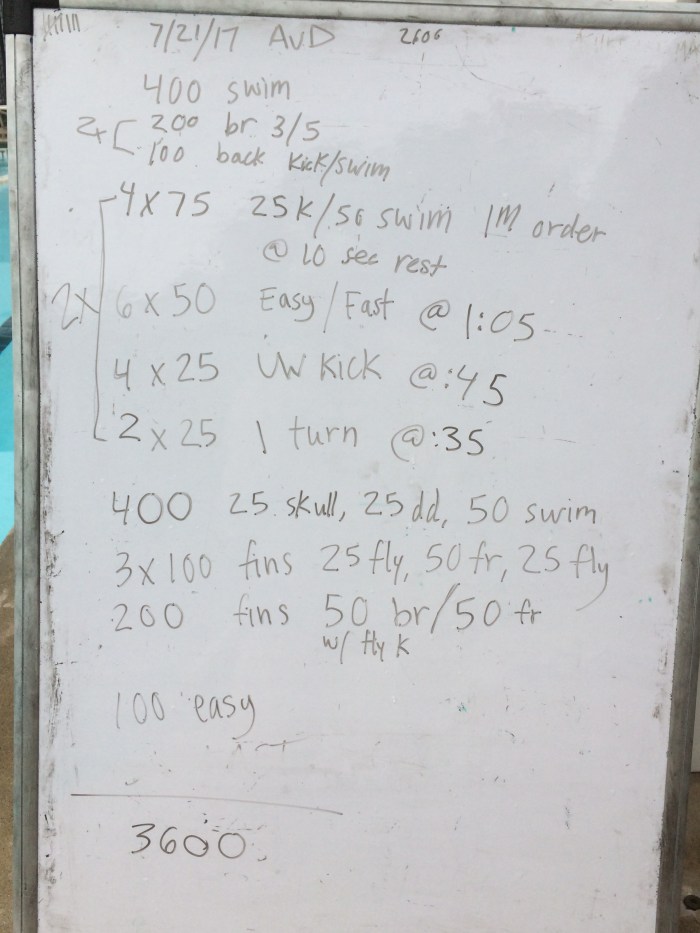 7/21/17 AvD 2606
400 swim
2x [ 200 br 3/5
100 back kick/swim
4 x 75 25K/50 swim IM order
@ 10 sec rest
2x 6 x 50 Easy/Fast @ 1:05
4 x 25 UW Kick @:45
2 x 25 1 turn @:35
400 25 skull, 25 dd, 50 swim
3x100 fins 25 fly, 50 fr, 25 fly
200 fins 50 br/50 fr
w/ fly K
100 easy
3600